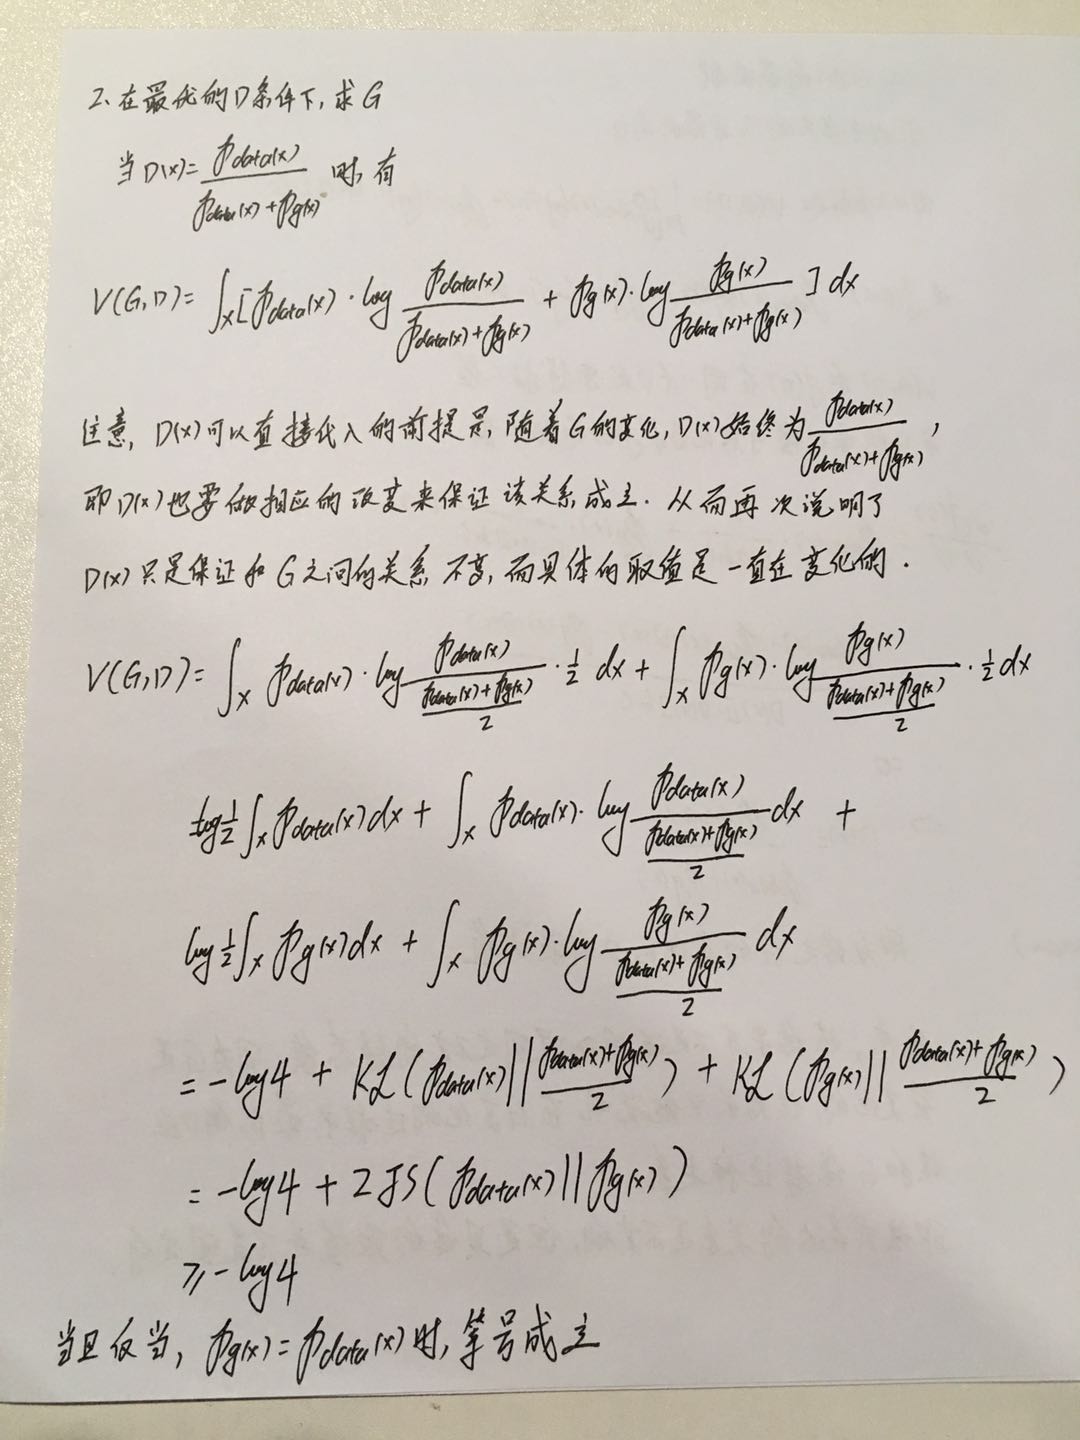 2、在最优的D条件下,求G
当D(x)=\frac{p_{data}(x)}{p_{data}(x)+p_g(x)} 时,有
V(G,D)=\int_x[p_{data}(x)·log\frac{p_{data}(x)}{p_{data}(x)+p_g(x)}+p_g(x)·log\frac{p_g(x)}{p_{data}(x)+p_g(x)}]dx
注意,D(x)可以直接代入的前提是,随着G的变化,D(x)始终为\frac{p_{data}(x)}{p_{data}(x)+p_g(x)},
即D(x)也要做相应的改变来保证该关系成立.从而再次说明了
D(x)只是保证和G之间的关系不变,而具体的取值是一直在变化的.
V(G,D)=\int_x p_{data}(x)·log\frac{p_{data}(x)}{\frac{p_{data}(x)+p_g(x)}{2}}·\frac{1}{2}dx+\int_x p_g(x)·log\frac{p_g(x)}{\frac{p_{data}(x)+p_g(x)}{2}}·\frac{1}{2}dx
log\frac{1}{2}\int_x p_{data}(x)dx+\int_x p_{data}(x)·log\frac{p_{data}(x)}{\frac{p_{data}(x)+p_g(x)}{2}}dx+
log\frac{1}{2}\int_x p_g(x)dx+\int_x p_g(x)·log\frac{p_g(x)}{\frac{p_{data}(x)+p_g(x)}{2}}dx
=-log4+KL(p_{data}(x)||\frac{p_{data}(x)+p_g(x)}{2})+KL(p_g(x)||\frac{p_{data}(x)+p_g(x)}{2})
=-log4+2JS(p_{data}(x)||p_g(x))
≥-log4
当且仅当,p_g(x)=p_{data}(x)时,等号成立